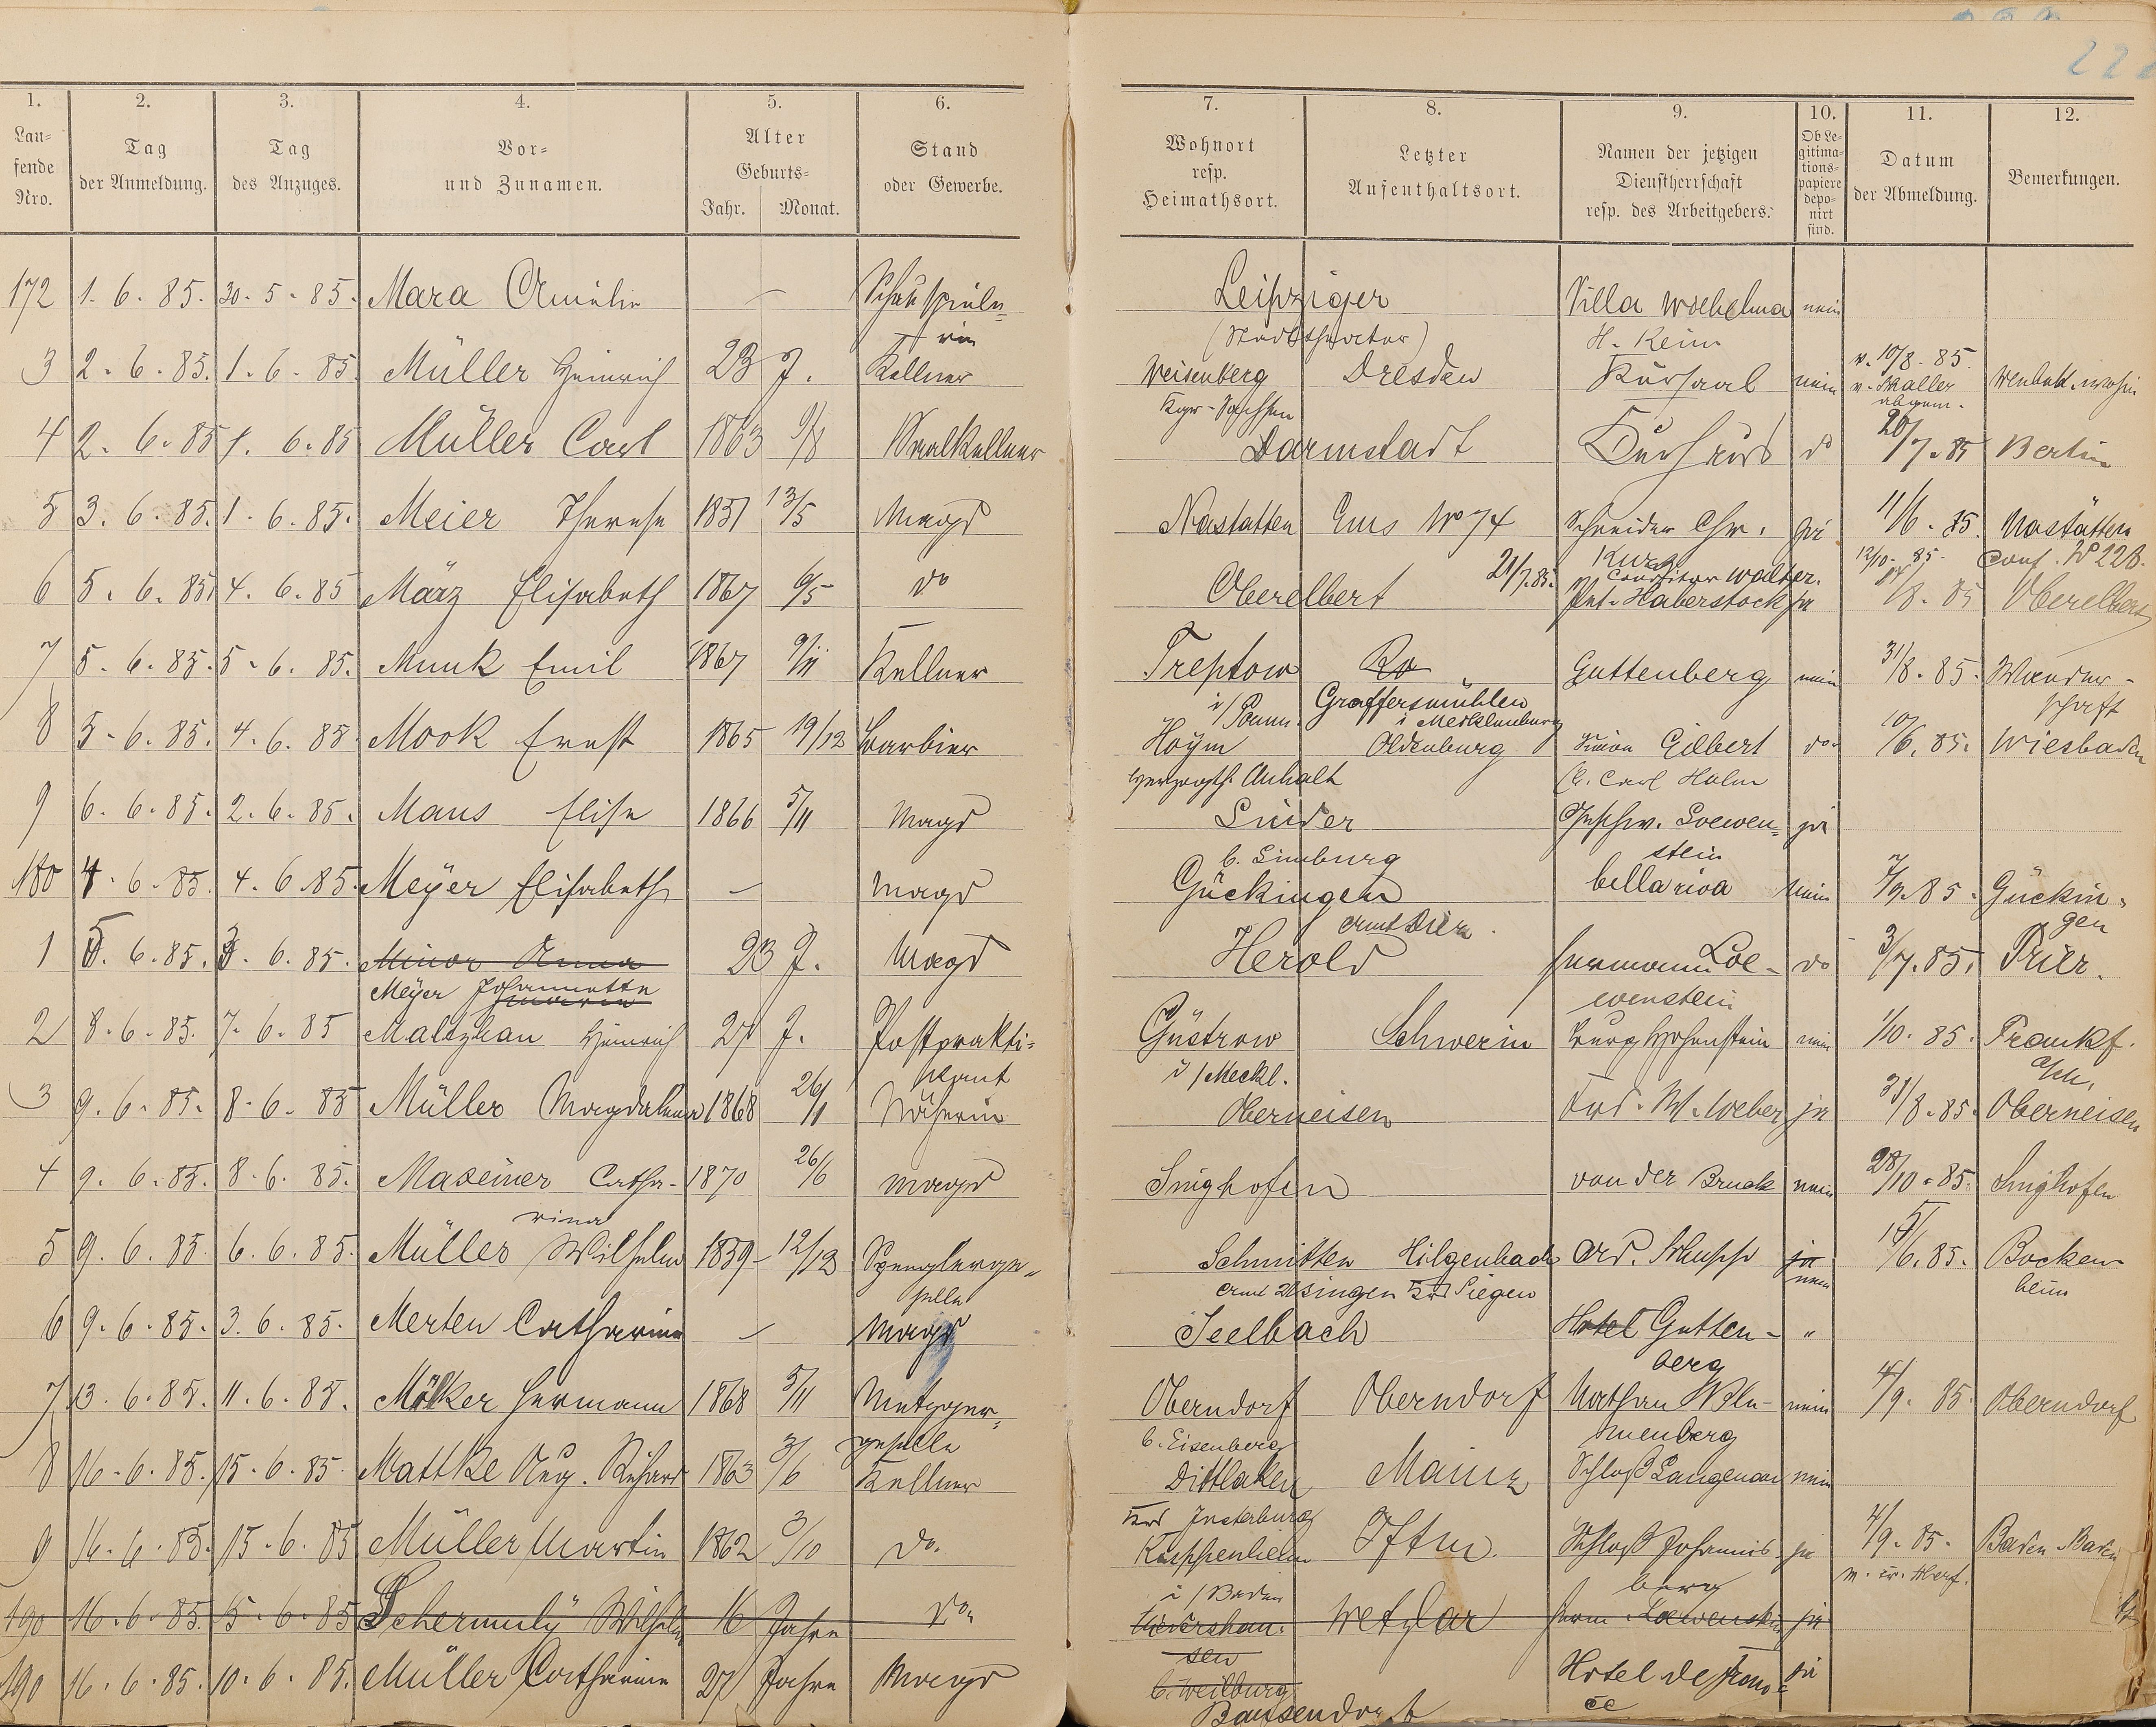 222
1. 2. 3. 4. 5. 6. 7. 8. 9. 10. 11. 12.
Lau-
fende
Nro.
Tag
der Anmeldung.
Tag
des Anzuges.
Vor-
und Zunamen.
Alter
Geburts-
Jahr. Monat.
Stand
oder Gewerbe.
Wohnort
resp.
Heimathsort.
Letzter
Aufenthaltsort.
Namen der jetzigen
Dienstherrschaft
resp. des Arbeitgebers.
Ob Le-
gitima-
tions-
papiere
depo-
nirt
sind.
Datum
der Abmeldung.
Bemerkungen.
172 1. 6. 85. 30. 5. 85. Mara Amelie — Schauspiele- Leipziger Villa Wilhelma nein
rin (Stadttheater) H. Keim
3 2. 6. 85. 1. 6. 85 Müller Heinrich 23 J. Kellner Weisenberg Dresden Kursaal nein v. 10/8. 85.
Kgr. Sachsen
4 2. 6. 85 1. 6. 85 Müller Carl 1863 9/8 Saalkellner Darmstadt Kurhaus do 20/7. 85 Berlin
5 3. 6. 85. 1. 6. 85. Meier Therese 1851 13/5 Magd Nastätten Ems No 74 Schneider Chr. ja 11/6. 85. Nastätten
21/7. 85. Conditor Walter. 12/10. 85. Conf. No 228.
6 5. 6. 85. 4. 6. 85 März Elisabeth 1867 6/5 do Oberelbert Pet. Haberstock ja /8. 85 Oberelbert
7 5. 6. 85. 5. 6. 85. Munk Emil 1867 9/11 Kellner Treptow Guttenberg nein 31/8. 85. Wander-
i/Pomm. Graffersmühlen schaft
i Mecklenburg
8 5. 6. 85. 4. 6. 85 Mook Ernst 1865 19/12 Barbier Hoym Oldenburg Simon Gilbert do 10/6. 85. Wiesbaden
Herzogth. Anhalt b. Carl Halm
9 6. 6. 85. 2. 6. 85. Maus Elise 1866 5/11 Magd Linder Geschw. Loewen- ja
b. Limburg stein
180 4. 6. 85. 4. 6. 85. Meyer Elisabeth — Magd Gückingen bella riva nein 7/9. 85. Gückin-
Amt Diez gen
1 5. 6. 85. 3. 6. 85. Minor Anna 23 J. Magd Herold Hermann Loe- do 3/7. 85. Trier.
Meyer Johannette ewenstein
2 8. 6. 85. 7. 6. 85 Maltzhan Heinrich 27 J. Postprakti- Güstrow Schwerin Burg Hohenstein nein 1/10. 85. Frankf.
kant i/Meckl. a/M.
3 9. 6. 85. 8. 6. 85 Müller Magdalena 1868 26/11 Näherin Oberneisen Fried. W. Weber ja 31/8. 85. Oberneisen
4 9. 6. 85. 8. 6. 85. Maxeiner Catha- 1870 26/6 Magd Singhofen von der Bruck nein 28/10. 85. Singhofen
rina
5 9. 6. 85. 6. 6. 85. Müller Wilhelm 1859 12/12 Spenglerge- Schmitten Hilgenbach Ad. Schupp ja /6. 85. Bocken-
selle Amt Usingen Krs Siegen nein heim
6 9. 6. 85. 3. 6. 85. Merten Catharina — Magd Seelbach Hotel Gutten- "
berg
7 13. 6. 85. 11. 6. 85. Mölker Hermann 1868 5/11 Metzger- Oberndorf Oberndorf Nathan Blu- nein 4/9. 85. Oberndorf
geselle b. Eisenberg menberg
8 16. 6. 85. 15. 6. 85. Mattke Aug. Richard 1863 3/6 Kellner Dittlaken Mainz Schloß Langenau nein
Krs Insterburg
9 16. 6. 85. 15. 6. 85 Müller Martin 1862 3/10 do. Kuppenheim Schloß Johannis- ja 4/9. 85. Baden-Baden
i/Baden berg
190 16. 6. 85. 15. 6. 85 Schermuly Wilhelm 16 Jahre do. Wetzlar Herm. Loewenstein ja
sen
b. Weilburg
190 16. 6. 85. 10. 6. 85. Müller Catharina 27 Jahre Magd Bausendorf Hotel de Fran- ja
ce